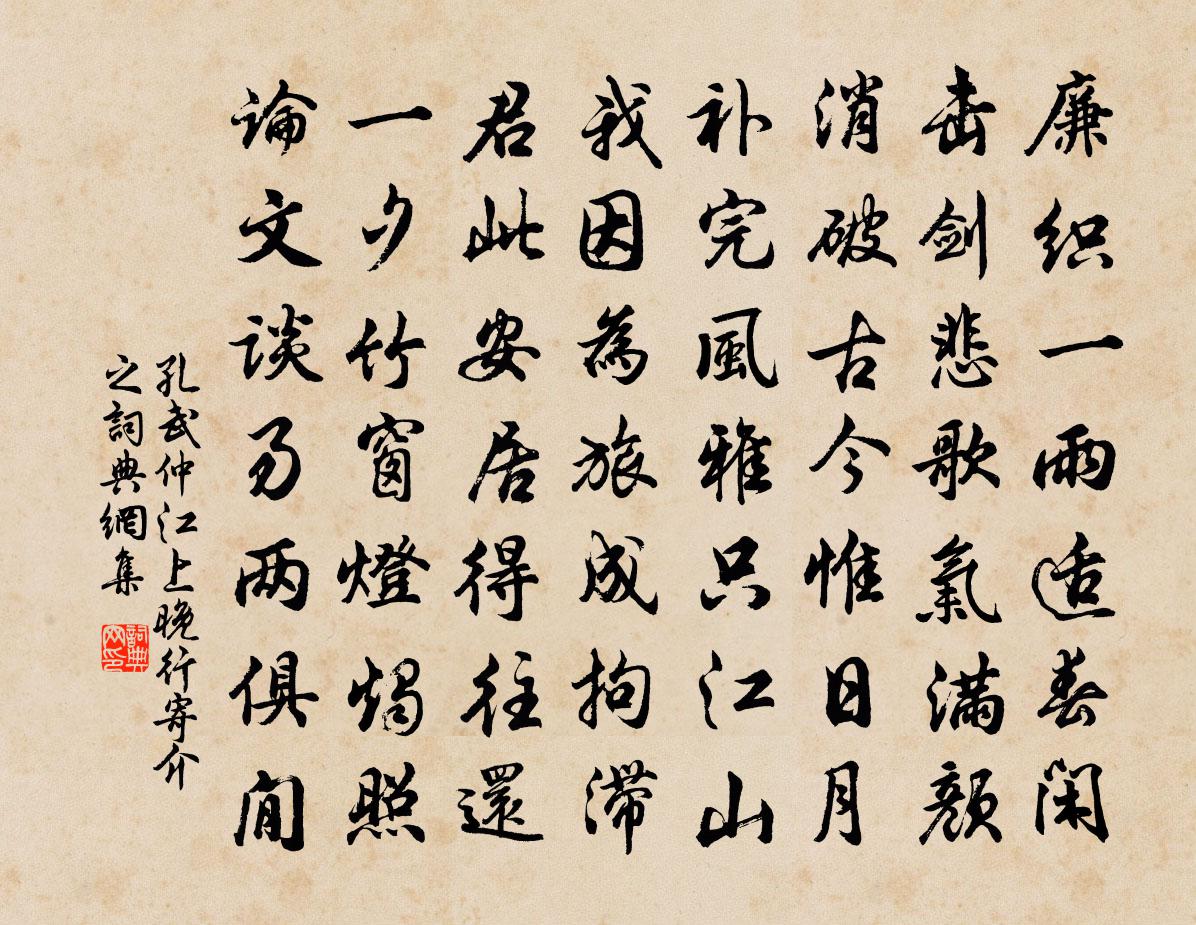 廉织一雨适春闲
击剑悲歌氣满颜
消破古今惟日月
补完風雅只江山
我因為旅成拘滞
君此安居得往還
一夕竹窗燈燭照
論文談易两俱間
孔武仲江上晚行寄介
之詞典網集
詞典
网印